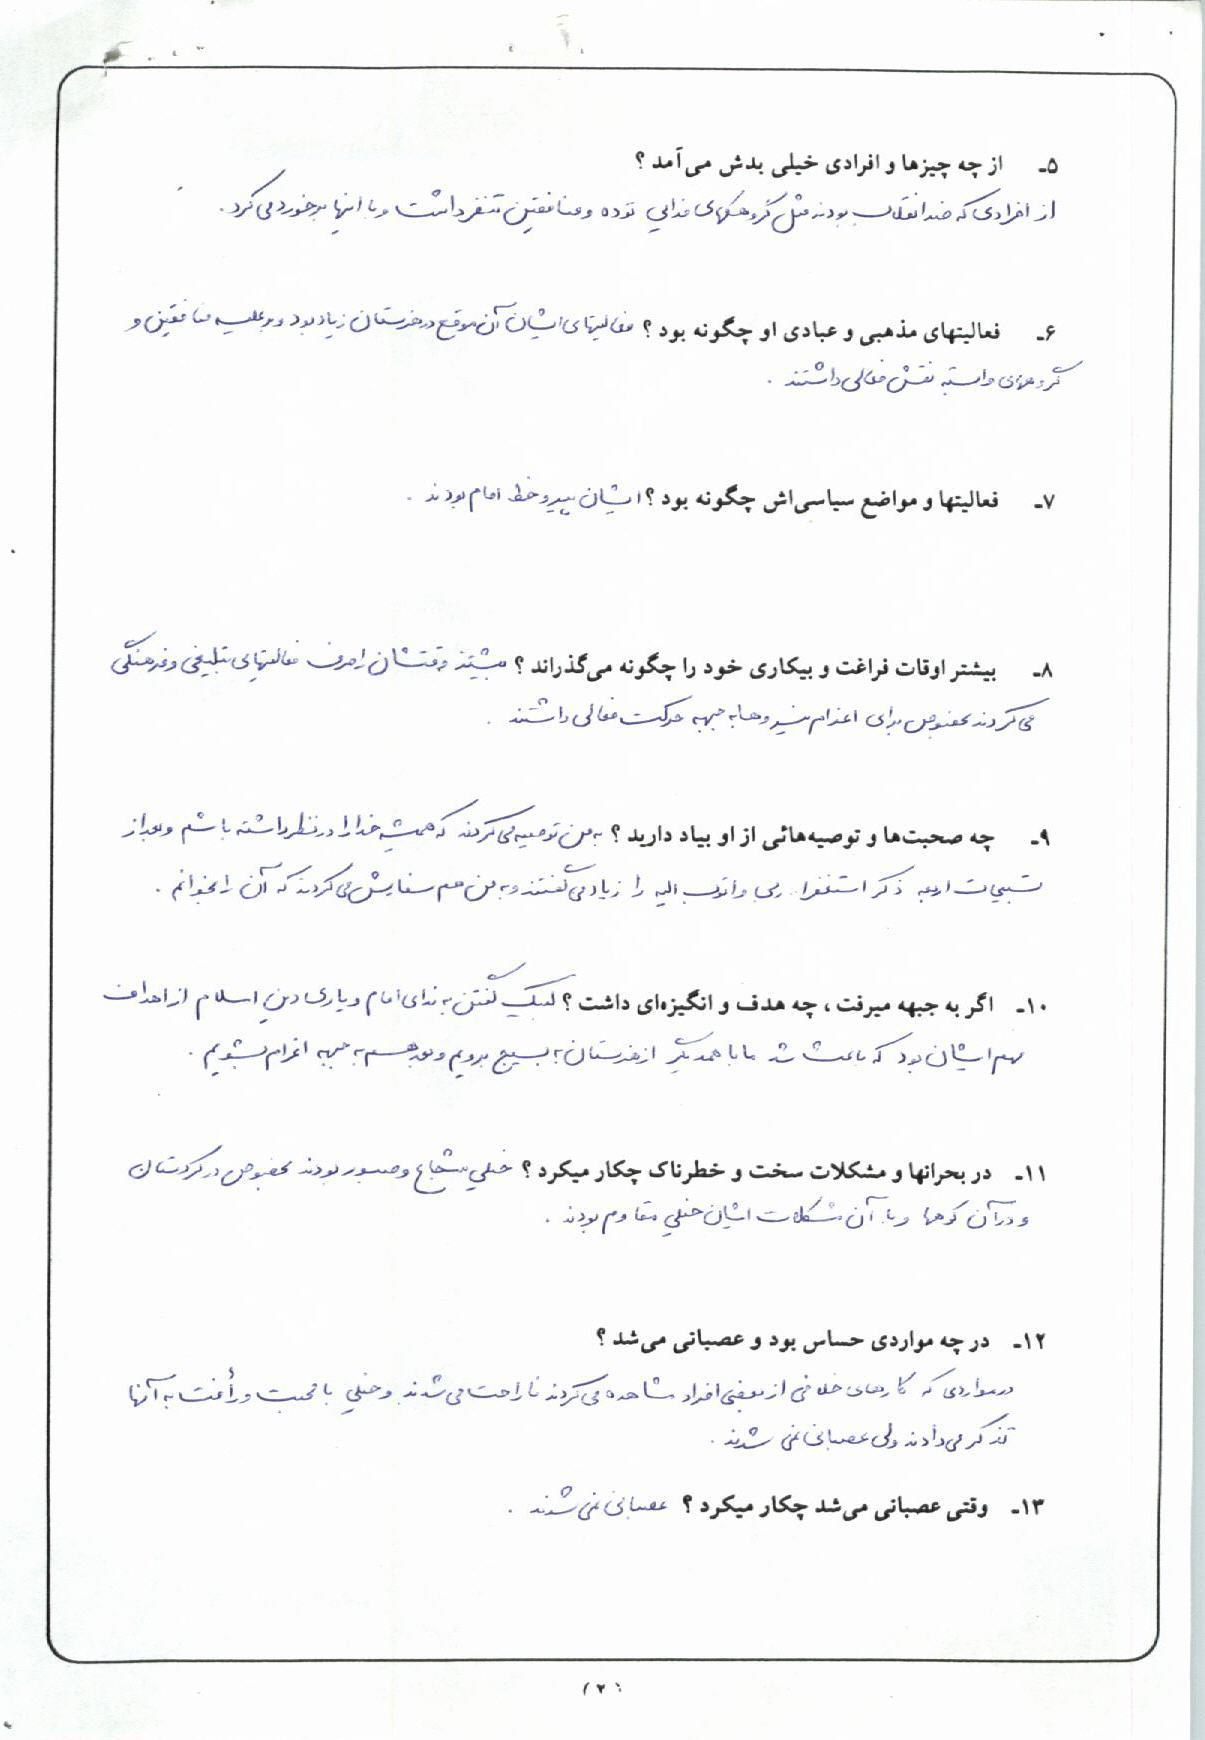 ۵ـ از چه چیزها و افرادی خیلی بدش می‌آمد ؟
از افرادی که ضد انقلاب بودند مثل گروهکهای فدایی توده و منافقین تنفر داشت و با اینها برخورد می کرد .
۶ـ فعالیتهای مذهبی و عبادی او چگونه بود ؟ فعالیتهای ایشان آن موقع در هنرستان زیاد بود و بر علیه منافقین و
گروههای وابسته نقش فعالی داشتند .
۷ـ فعالیتها و مواضع سیاسی‌اش چگونه بود ؟ ایشان پیرو خط امام بودند .
۸ـ بیشتر اوقات فراغت و بیکاری خود را چگونه می‌گذراند ؟ بیشتر وقتشان را صرف فعالیتهای تبلیغی و فرهنگی
می کردند بخصوص برای اعزام نیروها به جبهه حرکت فعالی داشتند .
۹ـ چه صحبت‌ها و توصیه‌هائی از او بیاد دارید ؟ به من توصیه می کردند که همیشه خدا را در نظر داشته باشم و بعد از
تسبیحات اربعه ذکر استغفرا... ربی و اتوب الیه را زیاد می گفتند و به من هم سفارش می کردند که آن را بخوانم .
۱۰ـ اگر به جبهه میرفت ، چه هدف و انگیزه‌ای داشت ؟ لبیک گفتن به ندای امام و یاری دین اسلام از اهداف
مهم ایشان بود که باعث شد ما با همدیگر از هنرستان به بسیج برویم و بعد هم به جبهه اعزام بشویم .
۱۱ـ در بحرانها و مشکلات سخت و خطرناک چکار میکرد ؟ خیلی شجاع و صبور بودند بخصوص در کردستان
و در آن کوهها و با آن مشکلات ایشان خیلی مقاوم بودند .
۱۲ـ در چه مواردی حساس بود و عصبانی می‌شد ؟
در مواردی که کارهای خلافی از بعضی افراد مشاهده می کردند ناراحت می شدند و خیلی با محبت و رأفت به آنها
تذکر می دادند ولی عصبانی نمی شدند .
۱۳ـ وقتی عصبانی می‌شد چکار میکرد ؟ عصبانی نمی شدند .
(۲)